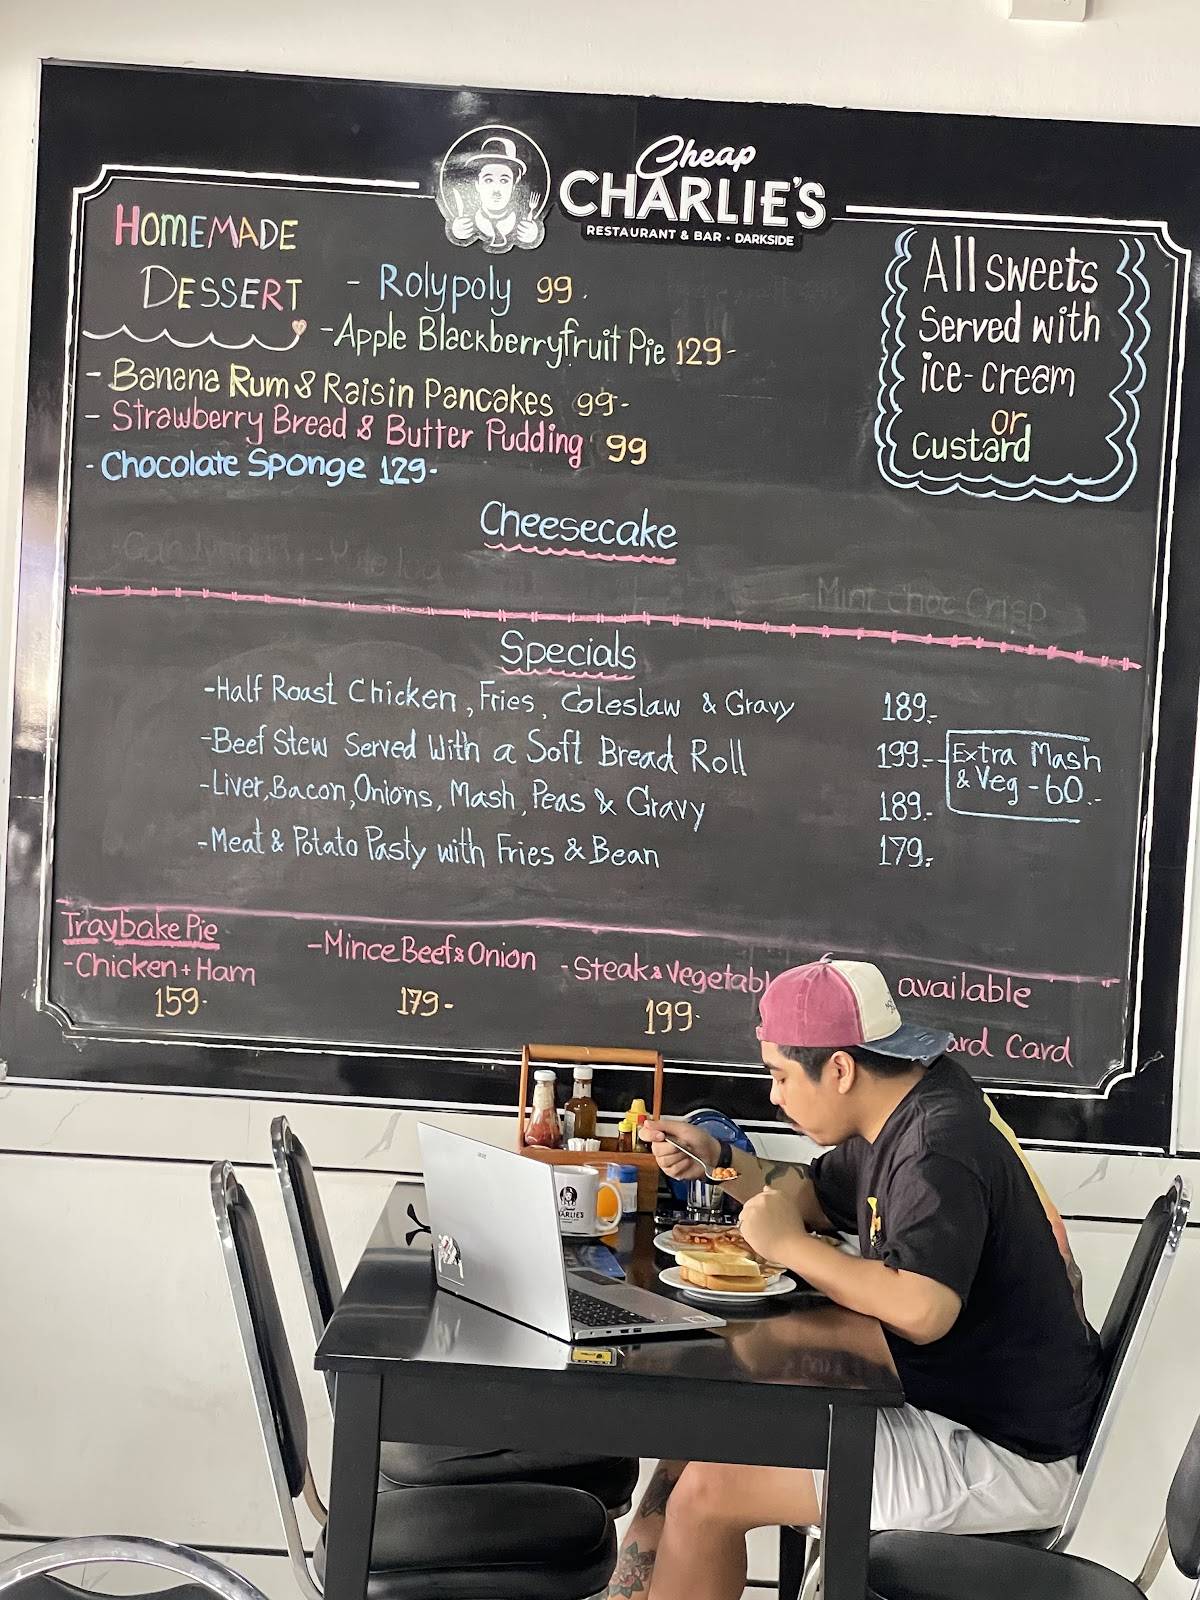 Cheap
CHARLIE'S
RESTAURANT & BAR • DARKSIDE
HOMEMADE
DESSERT
- Rolypoly 99.
- Apple Blackberryfruit Pie 129-
- Banana Rum & Raisin Pancakes 99-
- Strawberry Bread & Butter Pudding 99
- Chocolate Sponge 129-
All sweets
Served with
ice-cream
or
Custard
Cheesecake
Mint Choc Crisp
Specials
-Half Roast Chicken, Fries, Coleslaw & Gravy 189.-
-Beef Stew Served With a Soft Bread Roll 199.-
-Liver, Bacon, Onions, Mash, Peas & Gravy 189.-
-Meat & Potato Pasty with Fries & Bean 179.-
Extra Mash
& Veg - 60.-
Traybake Pie
-Chicken + Ham
159-
-Mince Beef & Onion
179-
-Steak & Vegetabl
199-
available
ard Card
CHARLIE'S